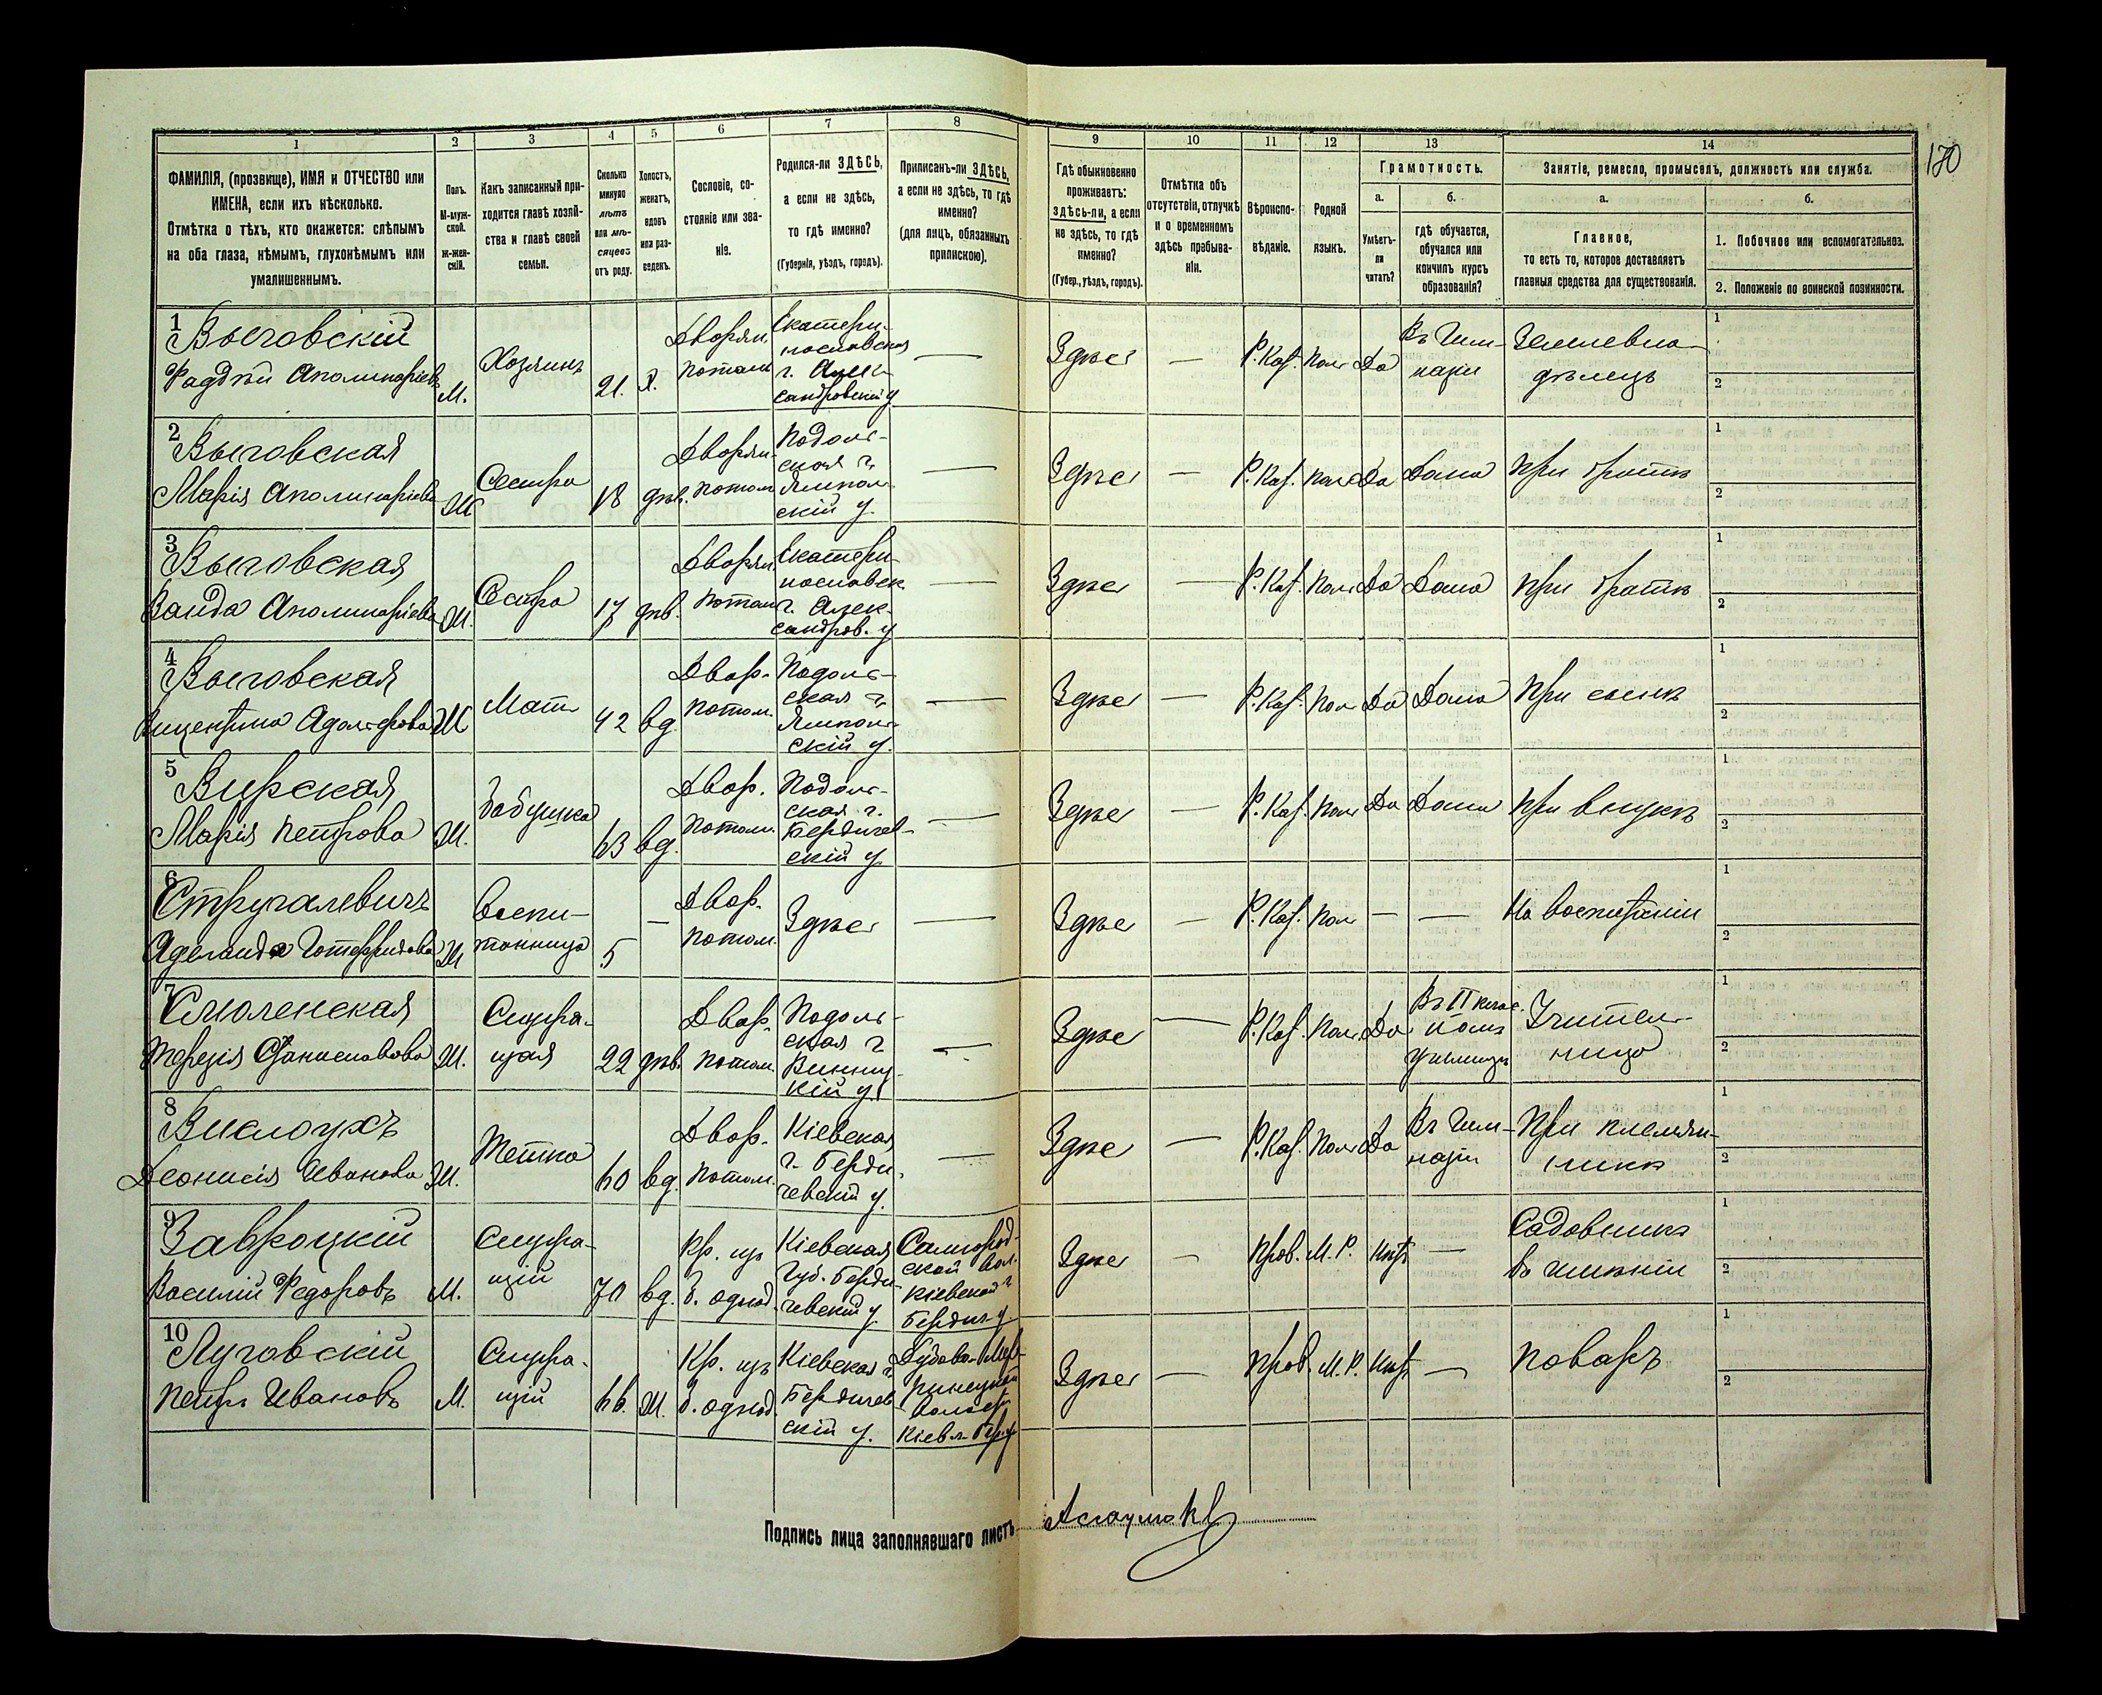 170
1
2
3
4
5
6
7
8
9
10
11
12
13
14
ФАМИЛІЯ, (прозвище), ИМЯ и ОТЧЕСТВО или
ИМЕНА, если ихъ нѣсколько.
Отмѣтка о тѣхъ, кто окажется: слѣпымъ
на оба глаза, нѣмымъ, глухонѣмымъ или
умалишеннымъ.
Полъ.
М-муж-
ской.
ж-жен-
скій.
Какъ записанный при-
ходится главѣ хозяй-
ства и главѣ своей
семьи.
Сколько
минуло
лѣтъ
или мѣ-
сяцевъ
отъ роду.
Холостъ,
женатъ,
вдовъ
или раз-
веденъ.
Сословіе, со-
стояніе или зва-
ніе.
Родился-ли ЗДѢСЬ,
а если не здѣсь,
то гдѣ именно?
(Губернія, уѣздъ, городъ).
Приписанъ-ли ЗДѢСЬ,
а если не здѣсь, то гдѣ
именно?
(для лицъ, обязанныхъ
припискою).
Гдѣ обыкновенно
проживаетъ:
здѣсь-ли, а если
не здѣсь, то гдѣ
именно?
(Губер., уѣздъ, городъ).
Отмѣтка объ
отсутствіи, отлучкѣ
и о временномъ
здѣсь пребыва-
ніи.
Вѣроиспо-
вѣданіе.
Родной
языкъ.
Грамотность.
а.
Умѣетъ-
ли
читать?
б.
гдѣ обучается,
обучался или
кончилъ курсъ
образованія?
Занятіе, ремесло, промыселъ, должность или служба.
а.
Главное,
то есть то, которое доставляетъ
главныя средства для существованія.
б.
1. Побочное или вспомогательное.
2. Положеніе по воинской повинности.
1
Выговскій
Фаддѣй Аполинаріевъ
М.
Хозяинъ
21.
Х.
Дворян.
потом.
Екатери-
нославская
г. Алек-
сандровскій у
—
Здѣсь
—
Р. Каѳ.
Пол.
Да
Въ Гим-
назіи
Землевла-
дѣлецъ
1
2
2
Выговская
Марія Аполинаріева
Ж
Сестра
18
дѣв.
Дворян.
потом
Подоль-
ская г.
Ямполь-
скій у.
—
Здѣсь
—
Р. Каѳ.
Пол.
Да
Дома
При братѣ
1
2
3
Выговская
Ванда Аполинаріева
Ж.
Сестра
17
дѣв.
Дворян.
потом
Екатери-
нославск.
г. Алек-
сандров. у
—
Здѣсь
—
Р. Каѳ.
Пол.
Да
Дома
При братѣ
1
2
4
Выговская
Вицентина Адольфова
Ж
Мать
42
вд.
Двор.
потом.
Подоль-
ская г.
Ямполь-
скій у.
—
Здѣсь
—
Р. Каѳ.
Пол.
Да
Дома
При сынѣ
1
2
5
Вирская
Марія Петрова
Ж.
Бабушка
63
вд.
Двор.
потом.
Подоль-
ская г.
Бердичев-
скій у.
—
Здѣсь
—
Р. Каѳ.
Пол.
Да
Дома
При внукѣ
1
2
6
Стругалевичъ
Аделаида Готфридова
Ж
Воспи-
танница
5
—
Двор.
потом.
Здѣсь
—
Здѣсь
—
Р. Каѳ.
Пол.
—
—
На воспитаніи
1
2
7
Смоленская
Терезія Станиславова
Ж.
Служа-
щая
22
дѣв.
Двор.
потом.
Подоль-
ская г.
Винниц-
кій у.
—
Здѣсь
—
Р. Каѳ.
Пол.
Да.
Учитель-
ница
1
2
8
Вислоухъ
Деонисія Иванова
Ж.
Тетка
60
вд.
Двор.
потом.
Кіевская
г. Берди-
чевскій у.
—
Здѣсь
—
Р. Каѳ.
Пол.
Да
Въ Гим-
назіи
При племян-
никѣ
1
2
9
Завроцкій
Василій Федоровъ
М.
Служа-
щій
70
вд.
Кр. изъ
б. однод.
Кіевская
губ. Берди-
чевскій у.
Самгород-
ской вол.
Кіевской г.
Бердич. у.
Здѣсь
—
Прав.
М. Р.
Нѣтъ
—
Садовникъ
въ имѣніи
1
2
10
Луговскій
Петръ Ивановъ
М.
Служа-
щій
66.
Ж.
Кр. изъ
б. однод.
Кіевская г.
Бердичев-
скій у.
Здѣсь
—
Прав.
М. Р.
Нѣтъ
—
Поваръ
1
2
Подпись лица заполнявшаго листъ